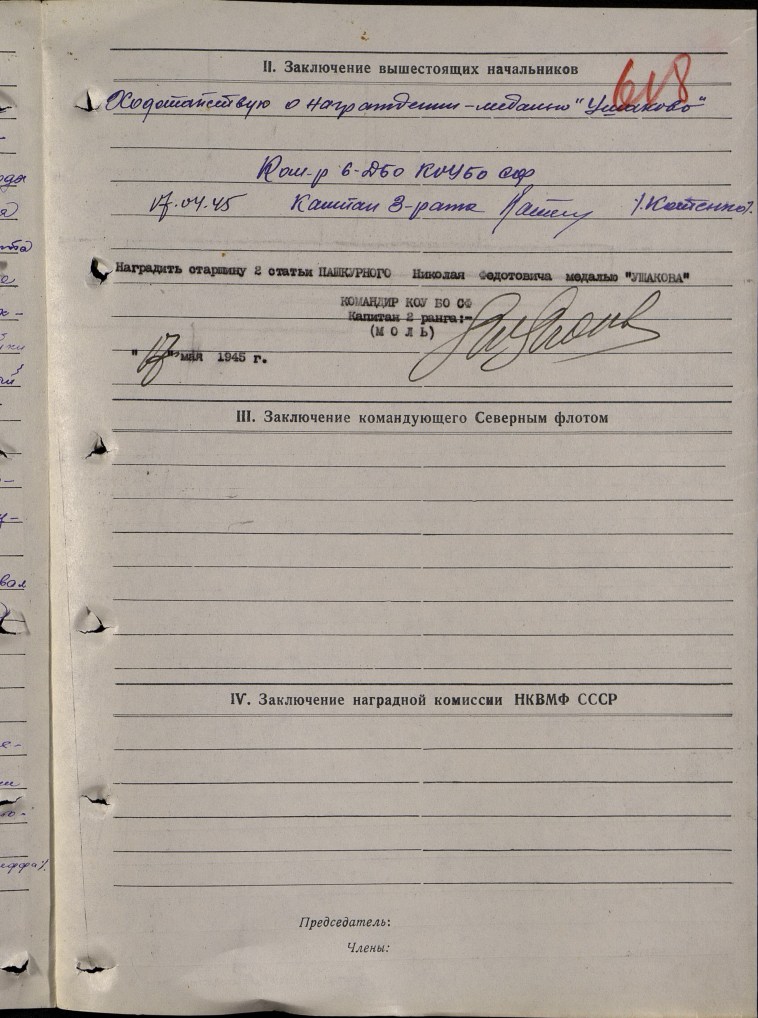 618
II. Заключение вышестоящих начальников
Ходотайствую о награждении - медалью "Ушаково"
Ком-р 6-ДБО КОУБО СФ
17.04.45 Капитан 3-ранга /.Котенко/.
Наградить старшину 2 статьи ПАШКУРНОГО Николая Федотовича медалью "УШАКОВА"
КОМАНДИР КОУ БО СФ
Капитан 2 ранга:-
(М О Л Ь)
"17" мая 1945 г.
III. Заключение командующего Северным флотом
IV. Заключение наградной комиссии НКВМФ СССР
Председатель:
Члены: